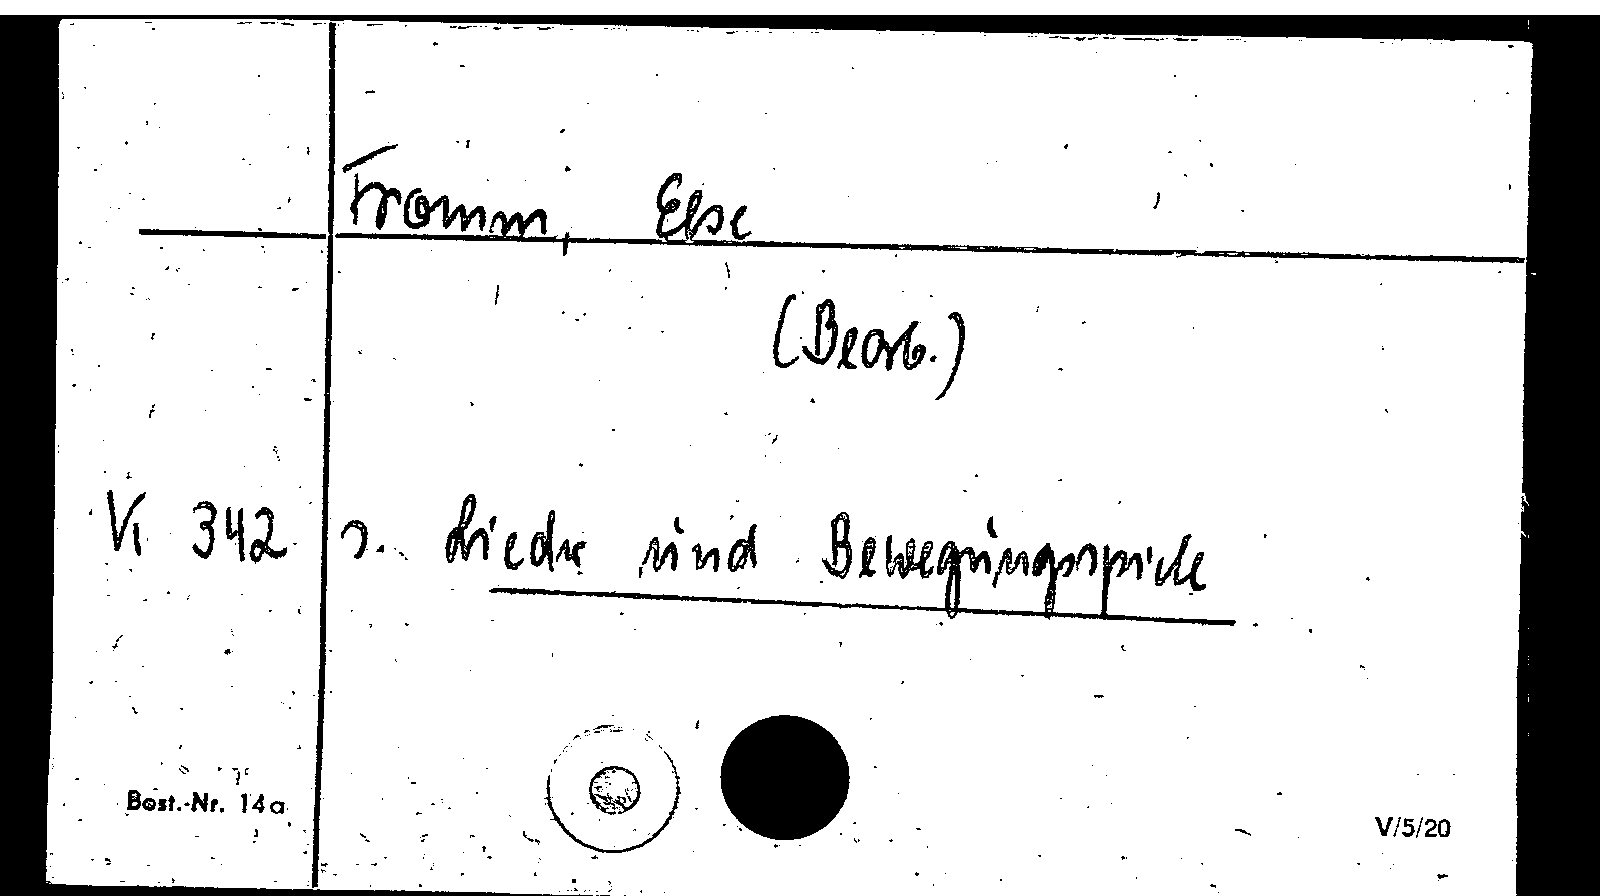 Fromm, Else
(Bearb.)
VI 342 s. Lieder und Bewegungsspiele
Best.-Nr. 14a
V/5/20